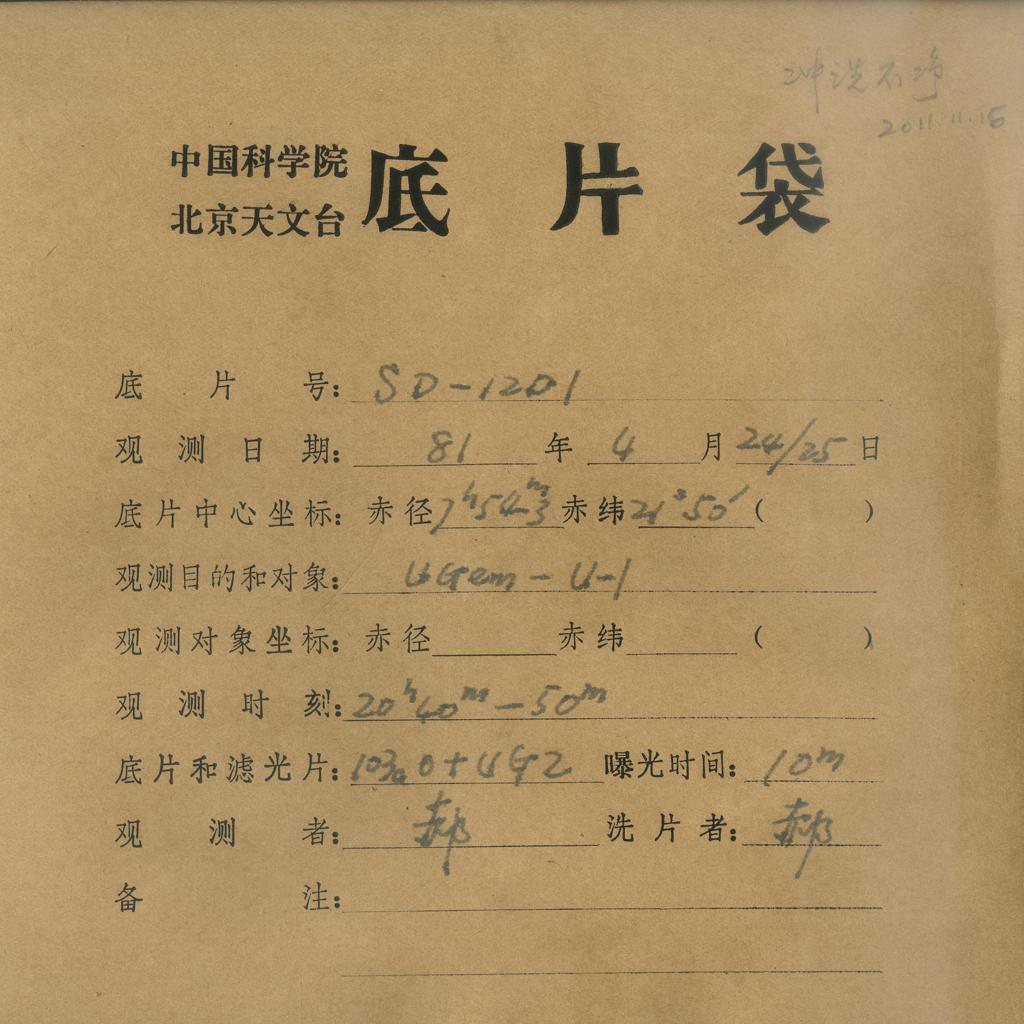 冲洗不净
2011.11.15
中国科学院
北京天文台
底片袋
底片号: SD-1201
观测日期: 81年4月24/25日
底片中心坐标: 赤径7h54m.3赤纬21°50′( )
观测目的和对象: UGem-U-1
观测对象坐标: 赤径 赤纬 ( )
观测时刻: 20h40m-50m
底片和滤光片: 103aO+UG2 曝光时间: 10m
观测者: 郝 洗片者: 郝
备注: